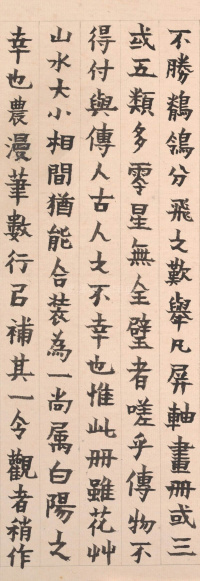 不勝鶺鴒分飛之歎舉凡屏軸畫冊或三
或五類多零星無全璧者嗟乎傳物不
得付與傳人古人之不幸也惟此冊雖花艸
山水大小相間猶能合裝為一尚属白陽之
幸也農漫筆數行㠯補其一令觀者稍作